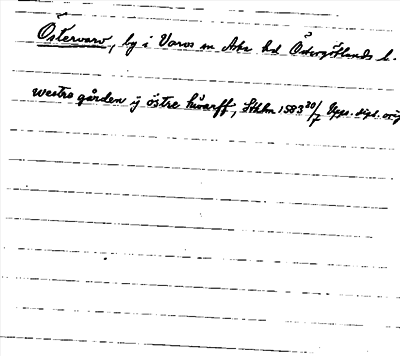 Östervarv, by i Varvs sn Aska hd Östergötlands l.
westra gården ij östre huarff, Sthlm 1583 20/7 Upps. dipl. orig